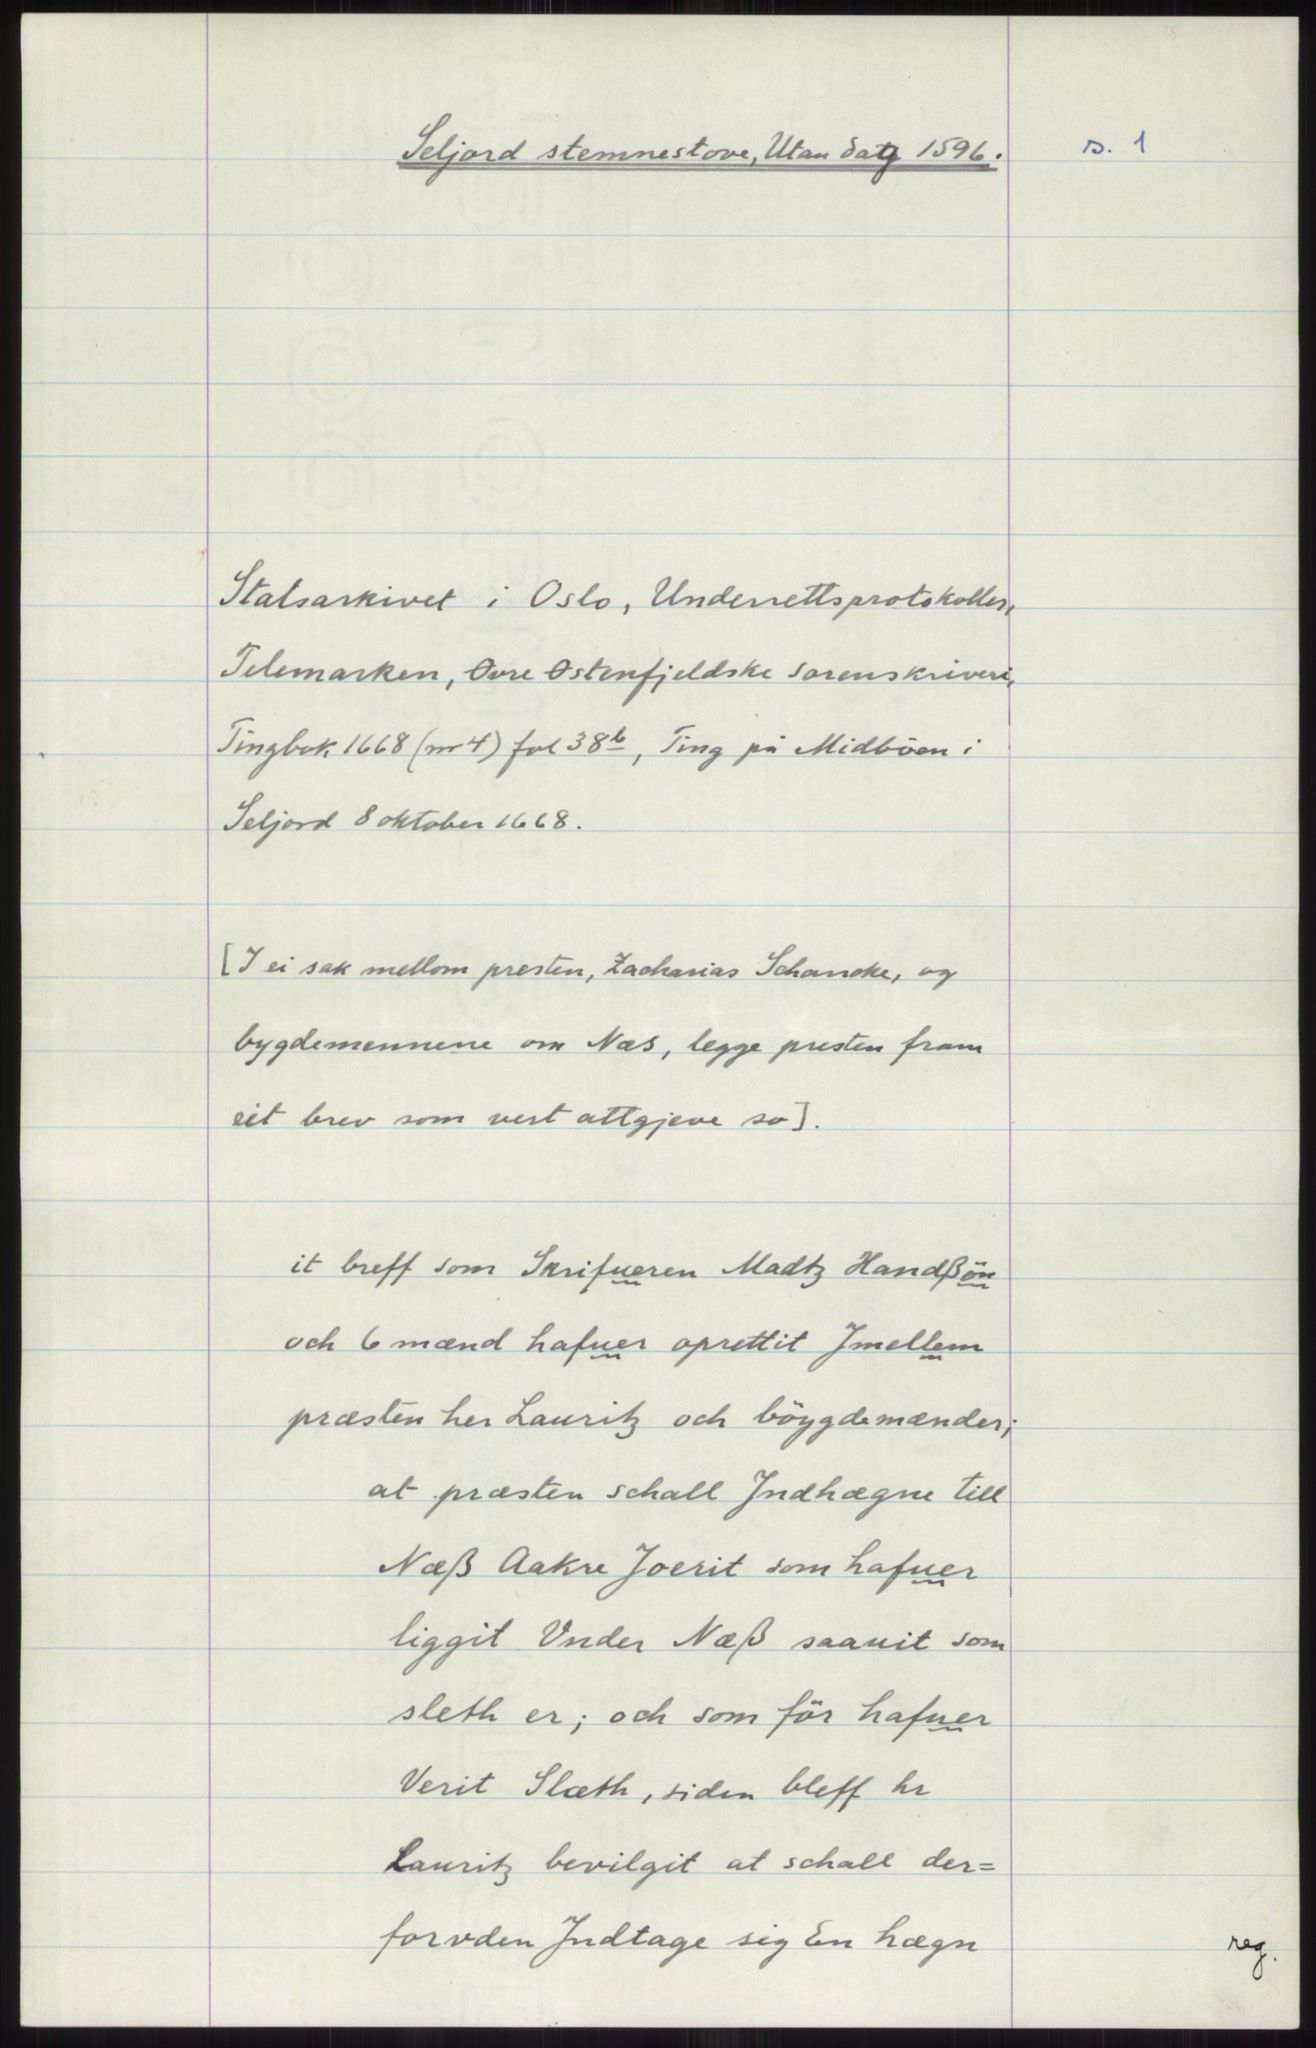 Seljord stemnestove, Utan dag 1596.
s. 1
Statsarkivet i Oslo, Underrettsprotokoller,
Telemarken, Øvre Østenfjeldske sorenskriveri,
Tingbok 1668 (nr 4) fol 38b, Ting på Midböen i
Seljord 8 oktober 1668.
[I ei sak mellom presten, Zacharias Schancke, og
bygdemennene om Næs, legge presten fram
eit brev som vert attgjeve so].
it breff som Skrifueren Madtz Handßön
och 6 mænd hafuer oprettit Jmellem
præsten her Lauritz och böygdemænder;
at præsten schall Jndhægne till
Næß Aakre Joerit som hafuer
liggit Vnder Næß saauit som
sleth er; och som för hafuer
Verit Slæth, siden bleff hr
Lauritz bevilgit at schall der=
forvden Jndtage sig En hægn
reg.